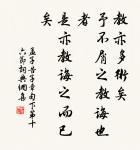 教亦多術矣
予不屑之教誨也
者
是亦教誨之而已
矣
孟子告子章句下第十
六節詞典網集